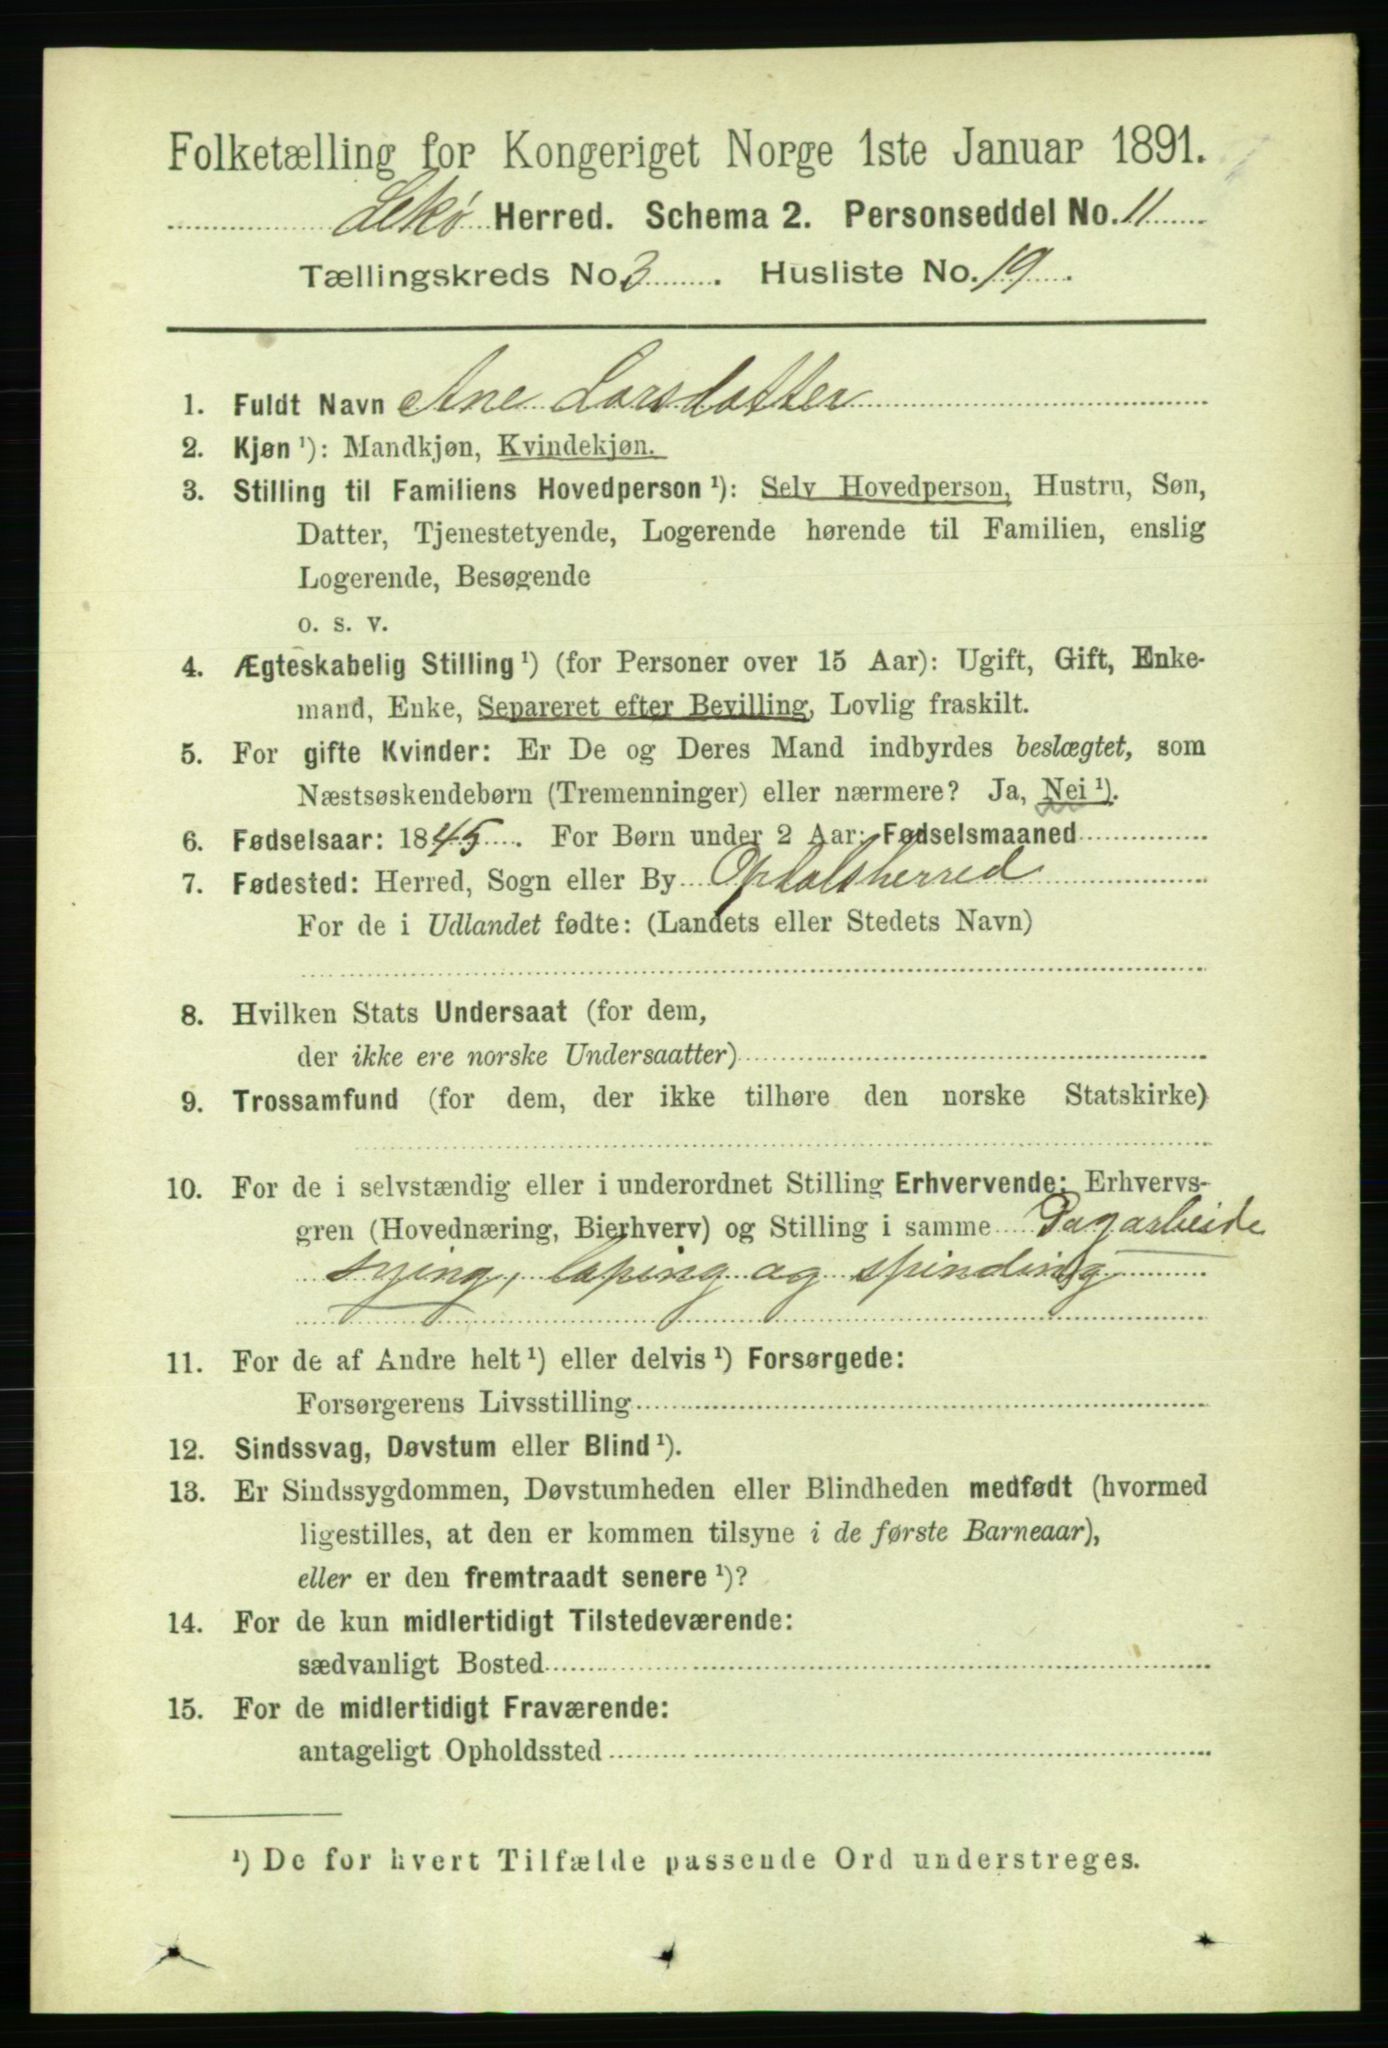 Folketælling for Kongeriget Norge 1ste Januar 1891.
Lekø Herred. Schema 2. Personseddel No. 11
Tællingskreds No. 3. Husliste No. 19.
1. Fuldt Navn Ane Larsdatter
2. Kjøn ¹): Mandkjøn, Kvindekjøn.
3. Stilling til Familiens Hovedperson ¹): Selv Hovedperson, Hustru, Søn,
Datter, Tjenestetyende, Logerende hørende til Familien, enslig
Logerende, Besøgende
o. s. v.
4. Ægteskabelig Stilling ¹) (for Personer over 15 Aar): Ugift, Gift, Enke-
mand, Enke, Separeret efter Bevilling, Lovlig fraskilt.
5. For gifte Kvinder: Er De og Deres Mand indbyrdes beslægtet, som
Næstsøskendebørn (Tremenninger) eller nærmere? Ja, Nei ¹).
6. Fødselsaar: 1845. For Børn under 2 Aar: Fødselsmaaned
7. Fødested: Herred, Sogn eller By Opdalsherred
For de i Udlandet fødte: (Landets eller Stedets Navn)
8. Hvilken Stats Undersaat (for dem,
der ikke ere norske Undersaatter)
9. Trossamfund (for dem, der ikke tilhøre den norske Statskirke)
10. For de i selvstændig eller i underordnet Stilling Erhvervende: Erhvervs-
gren (Hovednæring, Bierhverv) og Stilling i samme Dagarbeide
sying, laping og spinding
11. For de af Andre helt ¹) eller delvis ¹) Forsørgede:
Forsørgerens Livsstilling
12. Sindssvag, Døvstum eller Blind ¹).
13. Er Sindssygdommen, Døvstumheden eller Blindheden medfødt (hvormed
ligestilles, at den er kommen tilsyne i de første Barneaar),
eller er den fremtraadt senere ¹)?
14. For de kun midlertidigt Tilstedeværende:
sædvanligt Bosted
15. For de midlertidigt Fraværende:
antageligt Opholdssted
¹) De for hvert Tilfælde passende Ord understreges.